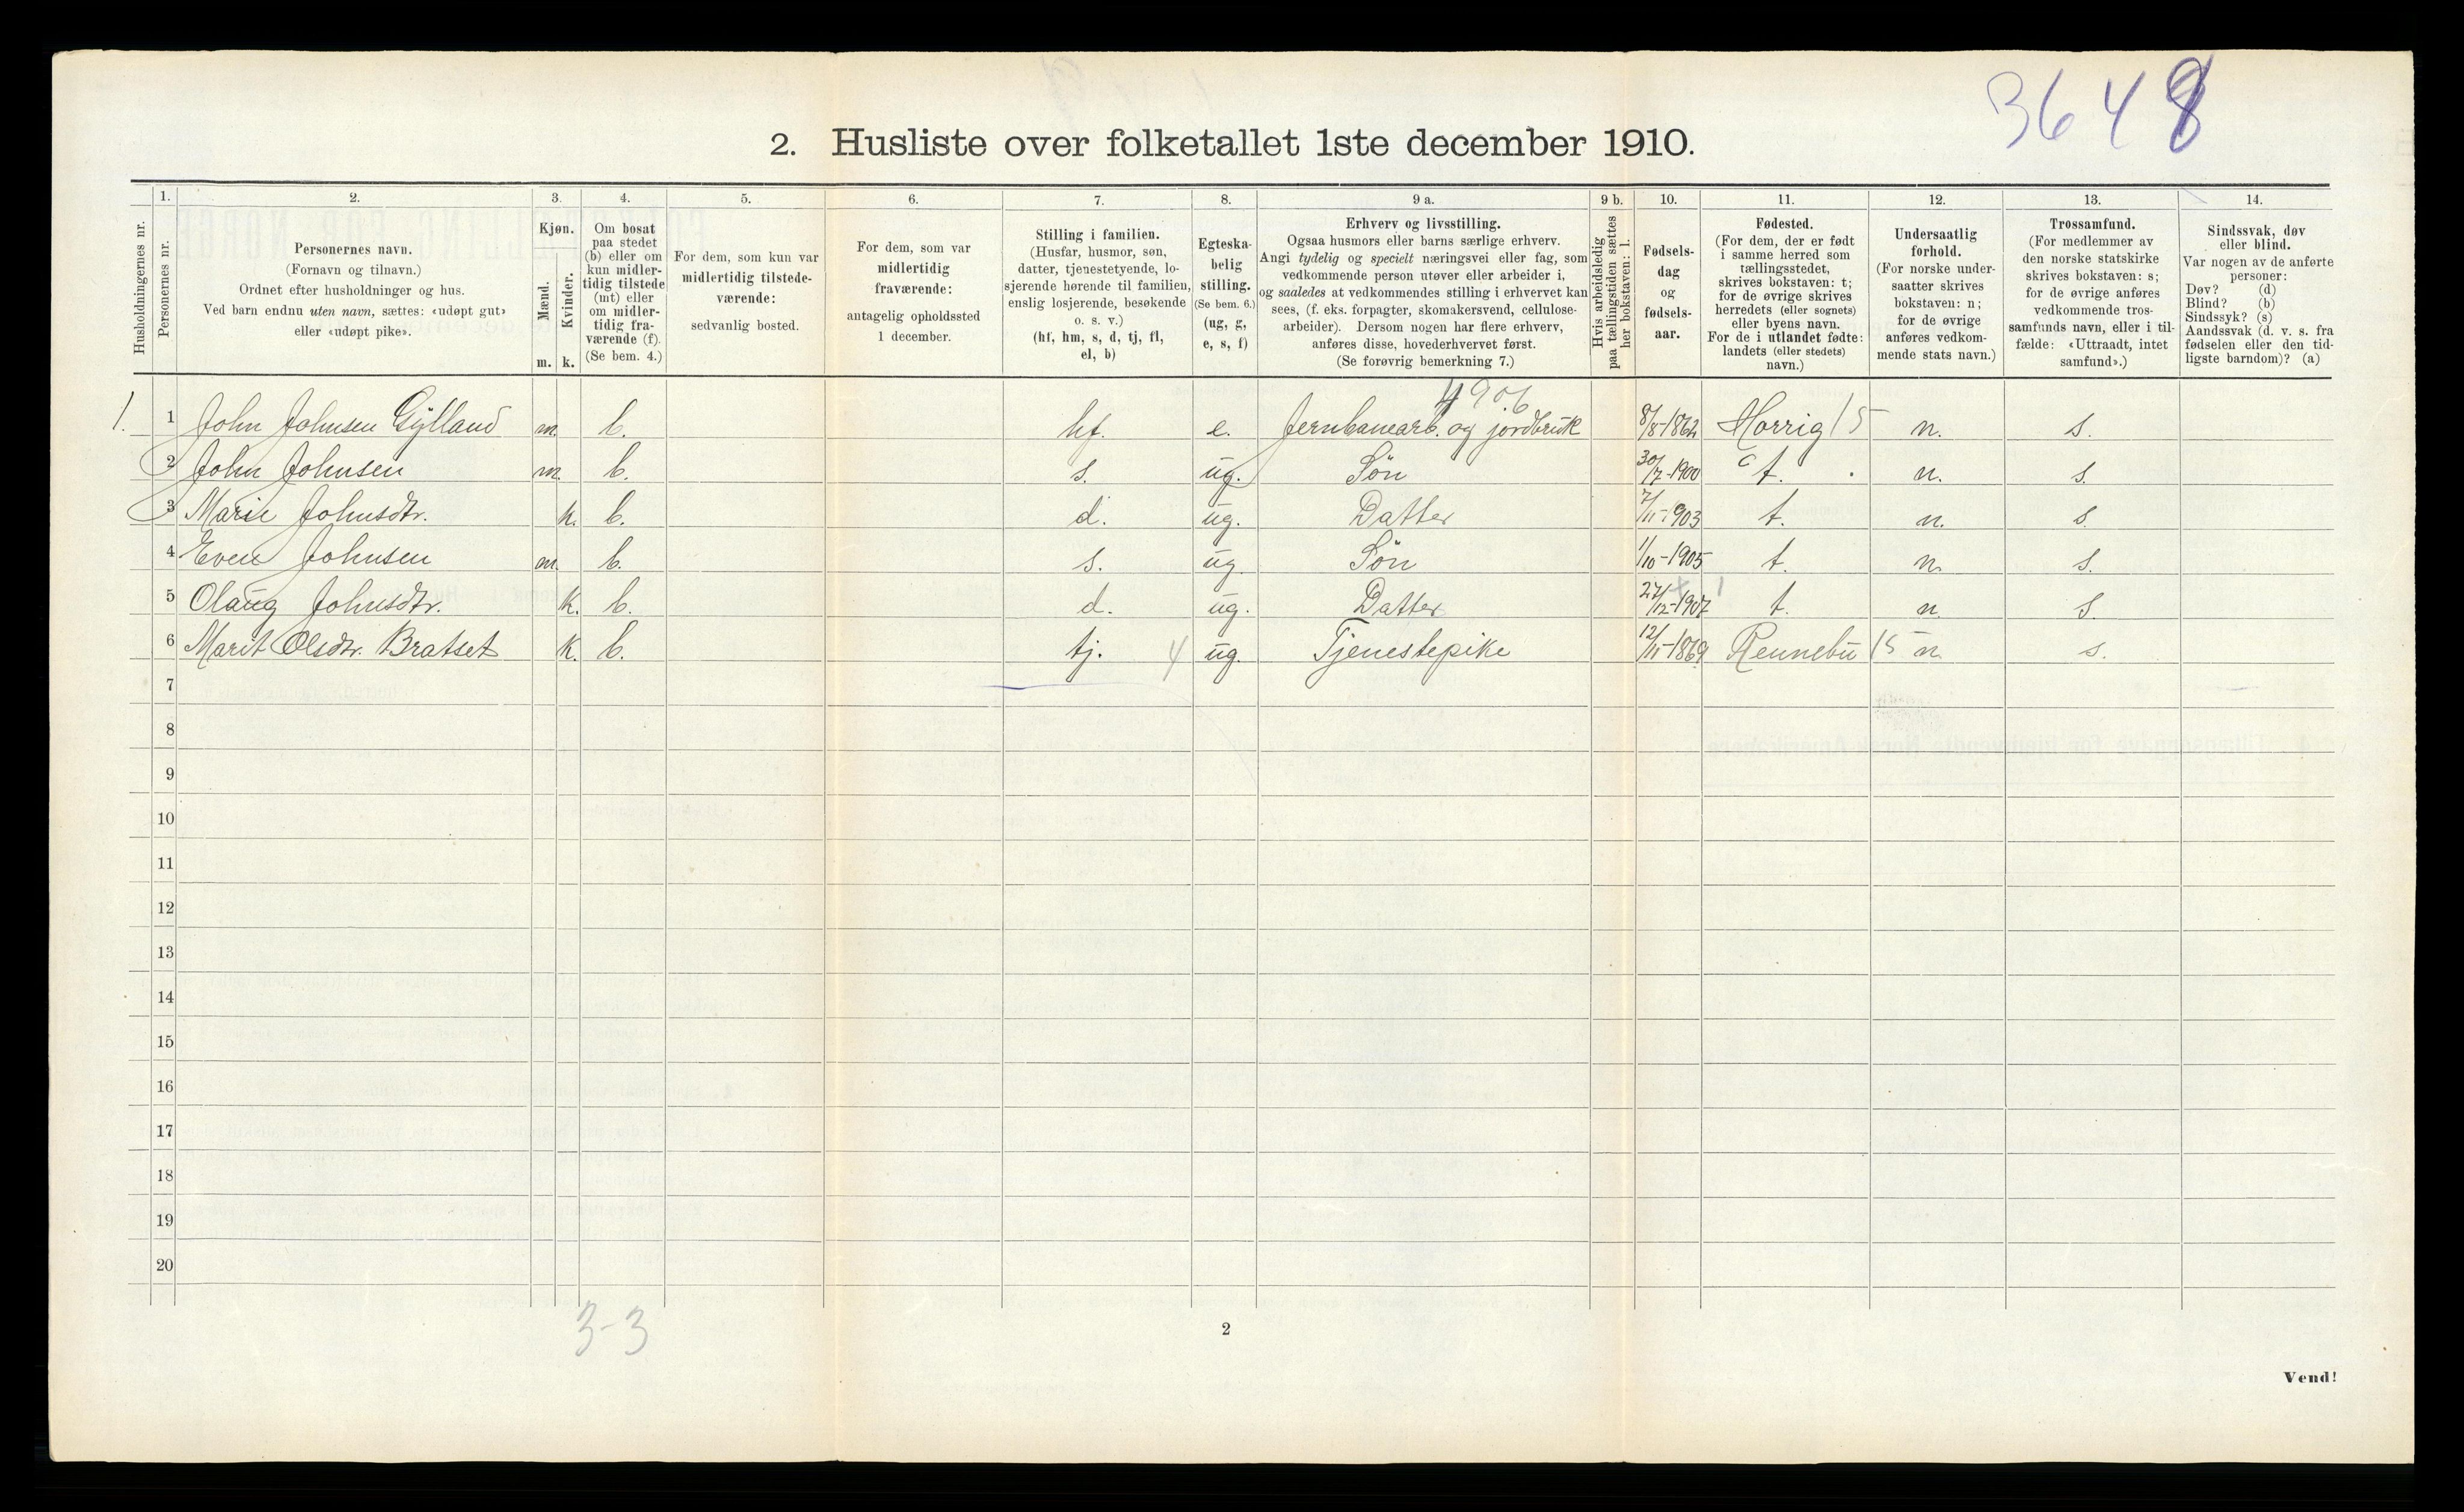 3648
2. Husliste over folketallet 1ste december 1910.
1. 2. 3. 4. 5. 6. 7. 8. 9 a. 9 b. 10. 11. 12. 13. 14.
Husholdningernes nr.
Personernes nr.
Personernes navn.
(Fornavn og tilnavn.)
Ordnet efter husholdninger og hus.
Ved barn endnu uten navn, sættes: «udøpt gut»
eller «udøpt pike».
Kjøn.
Mænd.
Kvinder.
m. k.
Om bosat
paa stedet
(b) eller om
kun midler-
tidig tilstede
(mt) eller
om midler-
tidig fra-
værende (f).
(Se bem. 4.)
For dem, som kun var
midlertidig tilstede-
værende:
sedvanlig bosted.
For dem, som var
midlertidig
fraværende:
antagelig opholdssted
1 december.
Stilling i familien.
(Husfar, husmor, søn,
datter, tjenestetyende, lo-
sjerende hørende til familien,
enslig losjerende, besøkende
o. s. v.)
(hf, hm, s, d, tj, fl,
el, b)
Egteska-
belig
stilling.
(Se bem. 6.)
(ug, g,
e, s, f)
Erhverv og livsstilling.
Ogsaa husmors eller barns særlige erhverv.
Angi tydelig og specielt næringsvei eller fag, som
vedkommende person utøver eller arbeider i,
og saaledes at vedkommendes stilling i erhvervet kan
sees, (f. eks. forpagter, skomakersvend, cellulose-
arbeider). Dersom nogen har flere erhverv,
anføres disse, hovederhvervet først.
(Se forøvrig bemerkning 7.)
Hvis arbeidsledig
paa tællingstiden sættes
her bokstaven: l.
Fødsels-
dag
og
fødsels-
aar.
Fødested.
(For dem, der er født
i samme herred som
tællingsstedet,
skrives bokstaven: t;
for de øvrige skrives
herredets (eller sognets)
eller byens navn.
For de i utlandet fødte:
landets (eller stedets)
navn.)
Undersaatlig
forhold.
(For norske under-
saatter skrives
bokstaven: n;
for de øvrige
anføres vedkom-
mende stats navn.)
Trossamfund.
(For medlemmer av
den norske statskirke
skrives bokstaven: s;
for de øvrige anføres
vedkommende tros-
samfunds navn, eller i til-
fælde: «Uttraadt, intet
samfund».)
Sindssvak, døv
eller blind.
Var nogen av de anførte
personer:
Døv? (d)
Blind? (b)
Sindssyk? (s)
Aandssvak (d. v. s. fra
fødselen eller den tid-
ligste barndom)? (a)
4906
1. 1 John Johnsen Gylland m. b. hf. e. Jernbanearb. og jordbruk 8/8-1862 Horrig 15 n. s.
2 John Johnsen m. b. s. ug. Søn 30/7-1900 t. n. s.
3 Marie Johnsdtr. k. b. d. ug. Datter 7/11-1903 t. n. s.
4 Even Johnsen m. b. s. ug. Søn 1/10-1905 t. n. s.
5 Olaug Johnsdtr. k. b. d. ug. Datter 27/12-1907 t. n. s.
6 Marit Olsdtr. Bratset k. b. tj. 4 ug. Tjenestepike 12/11-1869 Rennebu 15 n. s.
7
8
9
10
11
12
13
14
15
16
17
18
19
20
3-3
2
Vend!